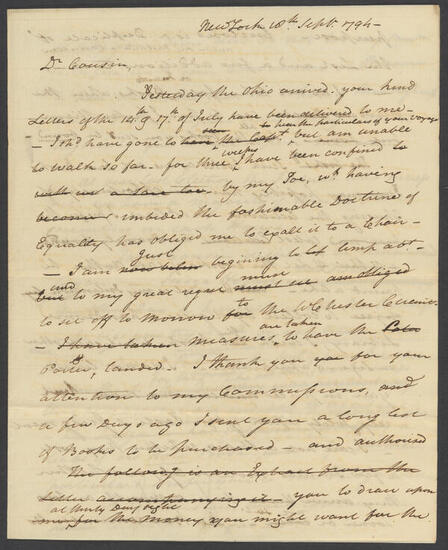 New York 18th Septr. 1794-
Dr Cousin,
Yesterday the Ohio arrived. your kind
Letters of the 14th & 17th of July have been delivered to me-
- I shd have gone to seen the Captt to hear the particulars of your voyage, but am unable
to walk so far. for three weeks I have been confined to
walk wt a lame toe, by my Toe, wh having
become imbibed the fashionable Doctrine of
Equality has obliged me to exalt it to a Chair-
- I am just now begining to limp abt-
and but to my great regret must am obliged
to set off to Morrow for to the WChester Circuit.
- I have taken measures are taken to have the
Porter, landed. I thank you for your
attention to my Commissions, and
a few Days ago I sent you a long list
of Books to be purchased - and authorised
The following is an Extract from the
Letter accompanying it - you to draw upon
me, at thirty Days sight for the Money you might want for the